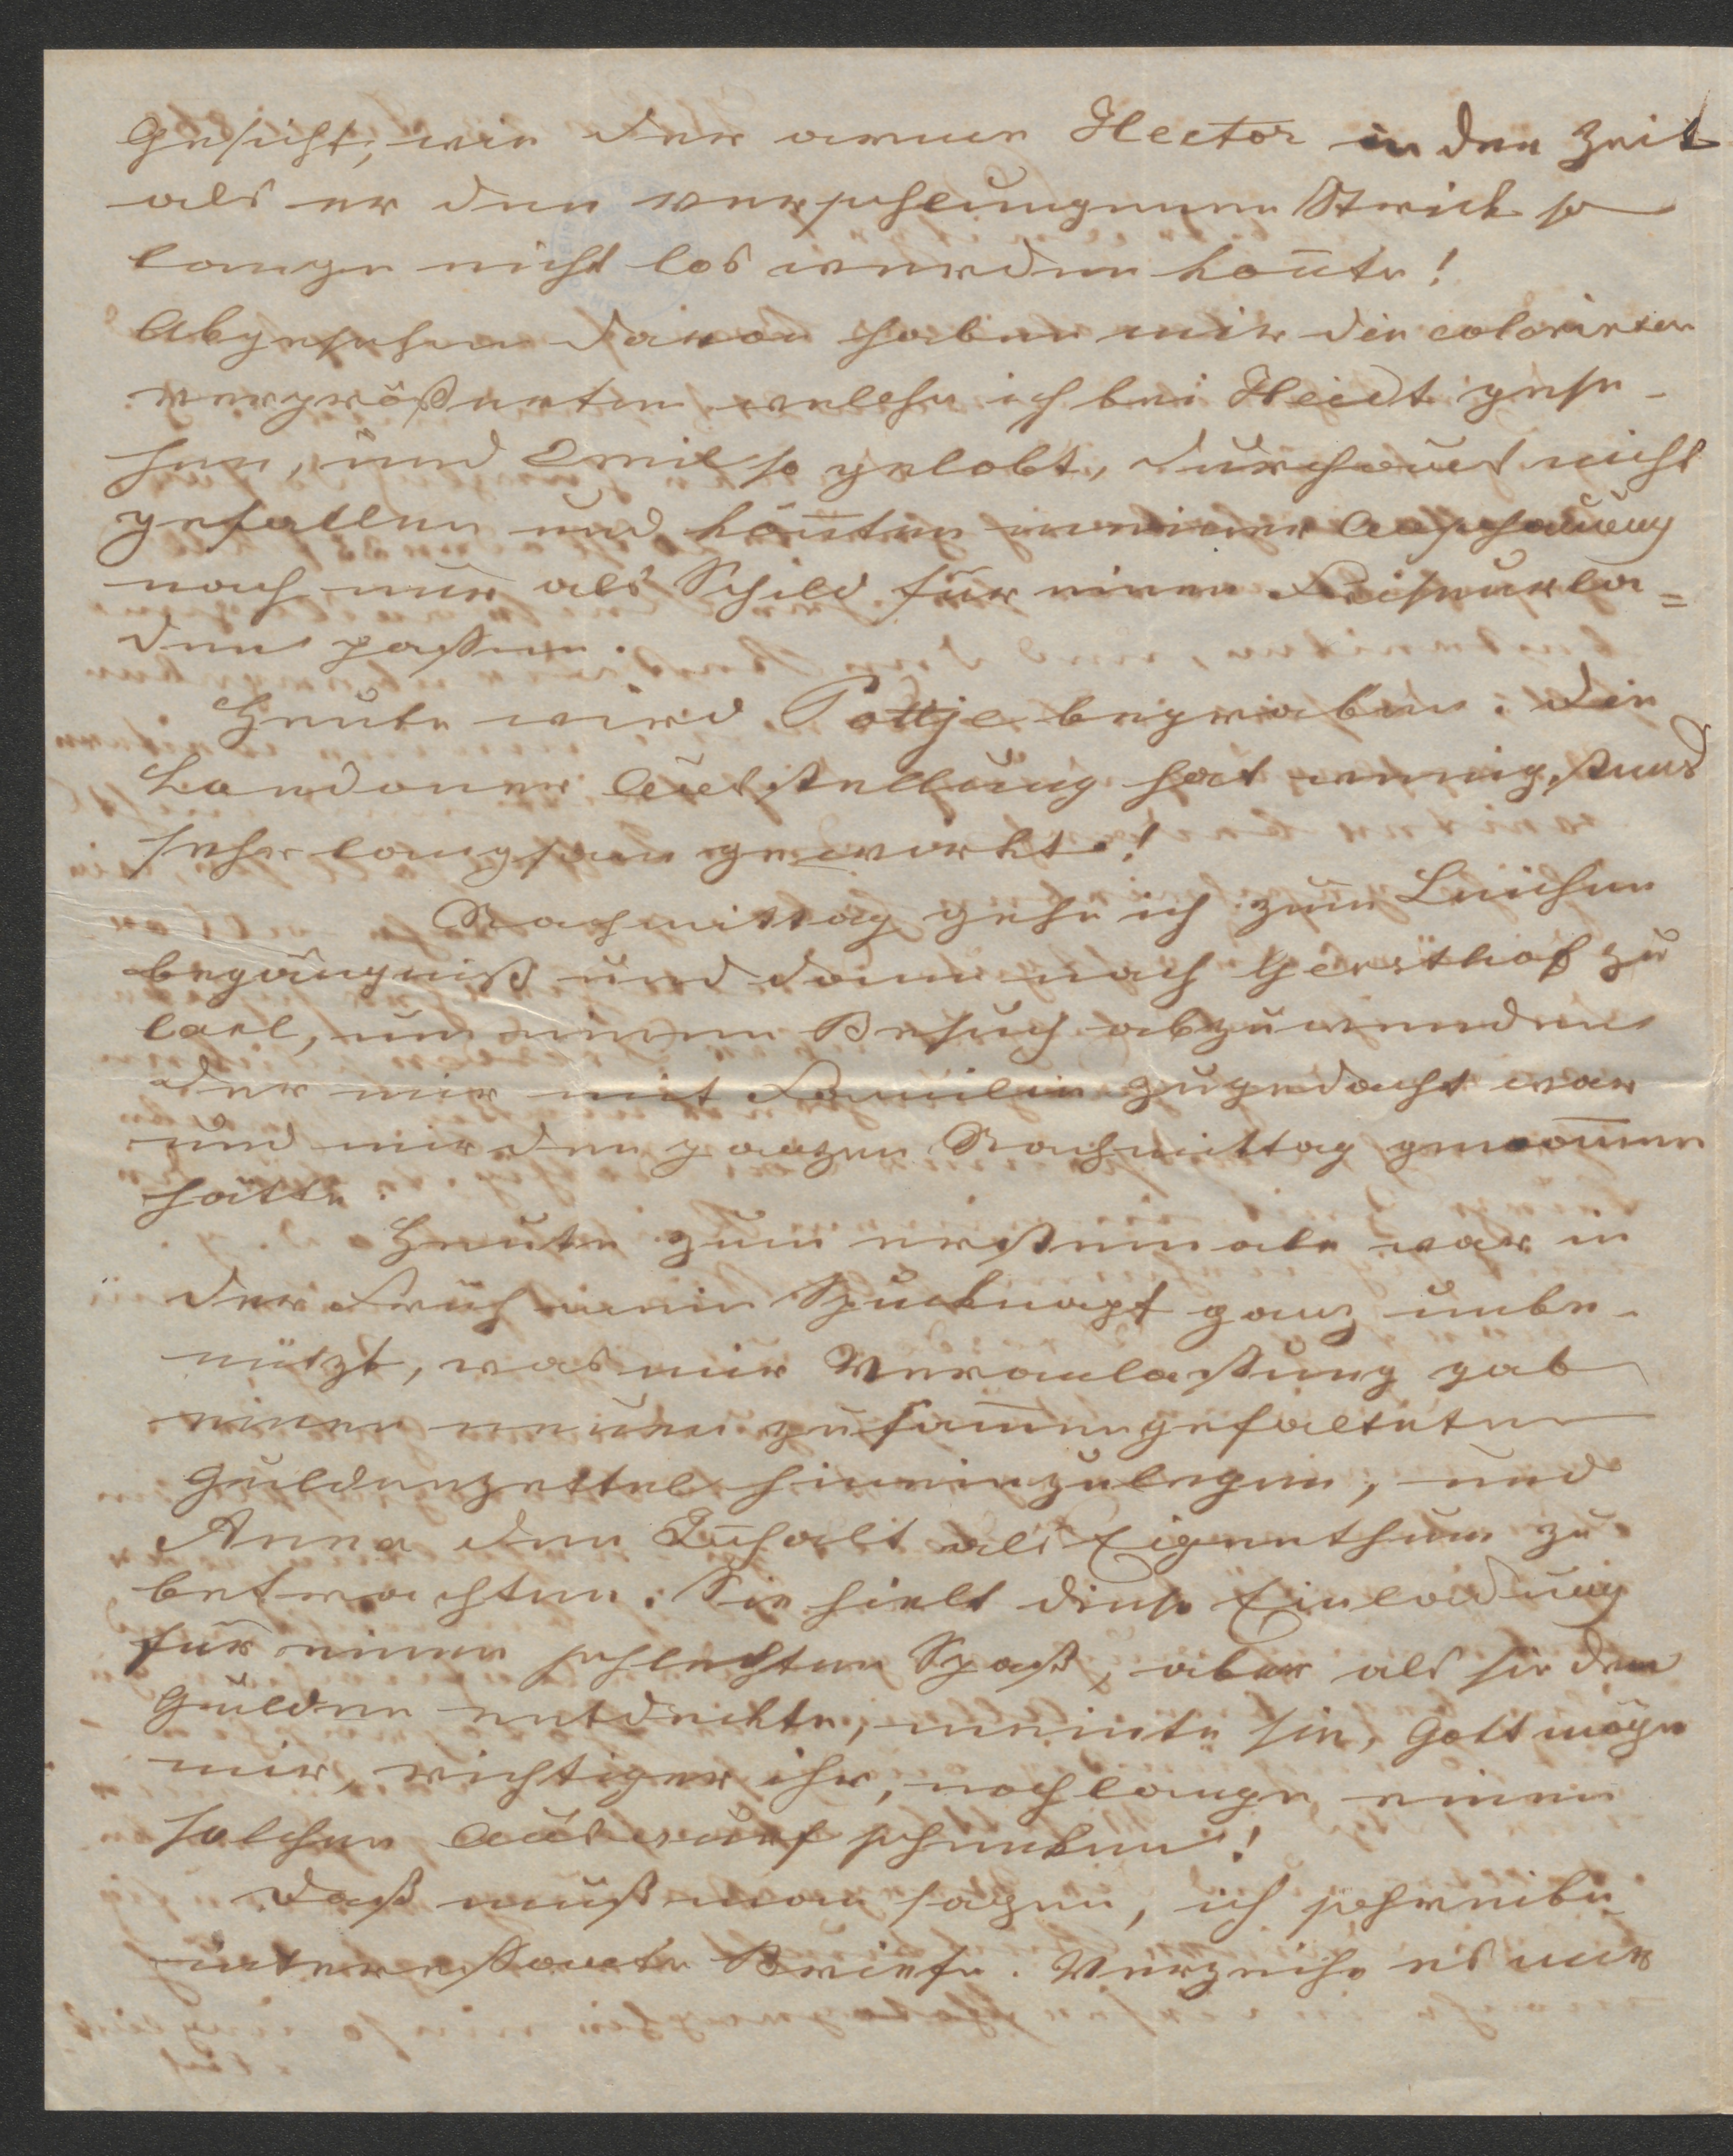 Gesicht, wie der arme Hector in der Zeit
als er den verschlungenen Strick so
lange nicht los werden kon̄te!
Abgesehen davon haben mir die colorirten
vergrößerten welche ich bei Heidt gese-
hen, und Emil so gelobt, durchaus nicht
gefallen und kön̄ten meiner Anschauung
nach nur als Schild für einen Friseurla=
den passen.
Heute wird Pottje begraben. Die
Londoner Ausstellung hat wenigstens
sehr langsam gewirkt!
Nachmittag gehe ich zum Leichen
begängniß und dann nach Gersthof zu
Carl, um einen Besuch abzuwenden
der mir mit Familie zugedacht war
und mir den ganzen Nachmittag genom̄en
hätte.
Heute zum erstenmale war in
der Früh mein Spucknapf ganz unbe-
nützt, was mir Veranlassung gab
einen neuen zusam̄engefalteten
Guldenzettel hineinzulegen, und
Anna den Inhalt als Eigenthum zu
betrachten. Sie hielt diese Einladung
für einen schlechten Spaß, aber als sie den
Gulden entdeckte, meinte sie, Gott möge
mir, richtiger ihr, noch lange einen
solchen Auswurf schenken!
Daß muß man sagen, ich schreibe
interessante Briefe. Verzeihe es mir